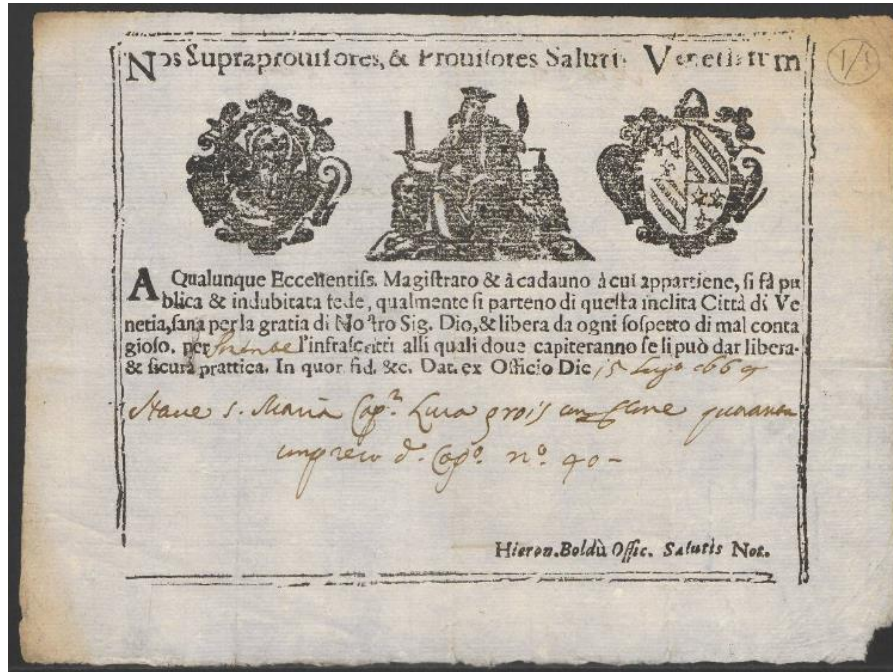 Nos Supraprouisores, & Prouisores Salutis Venetiarum
1/1
A Qualunque Eccellentiſs. Magiſtrato & à cadauno à cui appartiene, ſi fà pu
blica & indubitata fede, qualmente ſi parteno di queſta inclita Città di Ve
netia, ſana per la gratia di Noſtro Sig. Dio, & libera da ogni ſoſpetto di mal conta
gioſo. per l'infraſcritti alli quali doue capiteranno ſe li può dar libera-
& ſicura prattica. In quor fid. &c. Dat. ex Officio Die 15
Naue s. Maria Cap.n Luca quaranta
n.o 40 -
Hieron. Boldù Offic. Salutis Not.